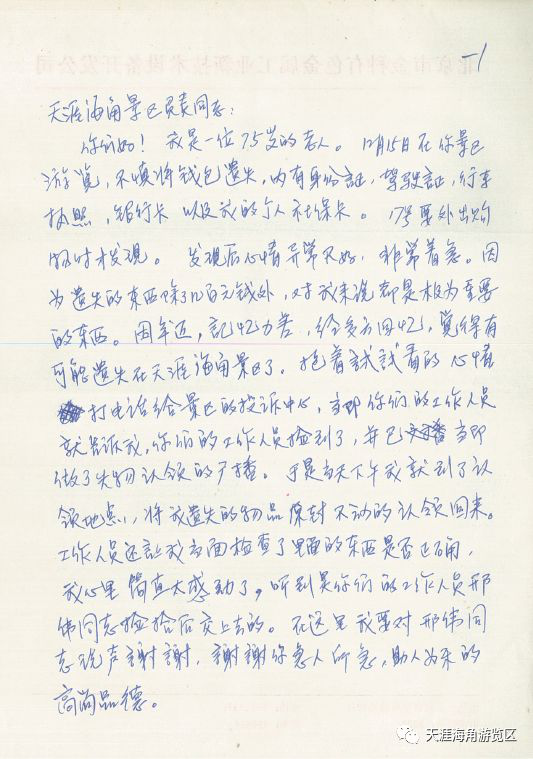 -1
天涯海角景区负责同志:
你们好！我是一位75岁的老人。12月15日在你景区
游览，不慎将钱包遗失，内有身份証，驾驶証，行车
执照，银行卡以及我的个人社保卡。17号要外出购
物时才发现。发现后心情异常不好，非常着急。因
为遗失的东西除了几百元钱外，对我来说都是极为重要
的东西。因年迈，記忆力差，经多方回忆，覚得有
可能遗失在天涯海角景区了。抱着試試看的心情
打电话给景区的投诉中心，当即你们的工作人员
就告诉我，你们的工作人员捡到了，并已 当即
做了失物认领的广播。于是当天下午我就到了认
领地点，将我遗失的物品原封不动的认领回来。
工作人员还让我当面检查了里面的东西是否正确，
我心里简直太感动了。听到是你们的工作人员邢
伟同志捡拾后交上去的。在这里我要对邢伟同
志说声謝謝，謝謝你急人所急，助人为乐的
高尚品德。
天涯海角游览区